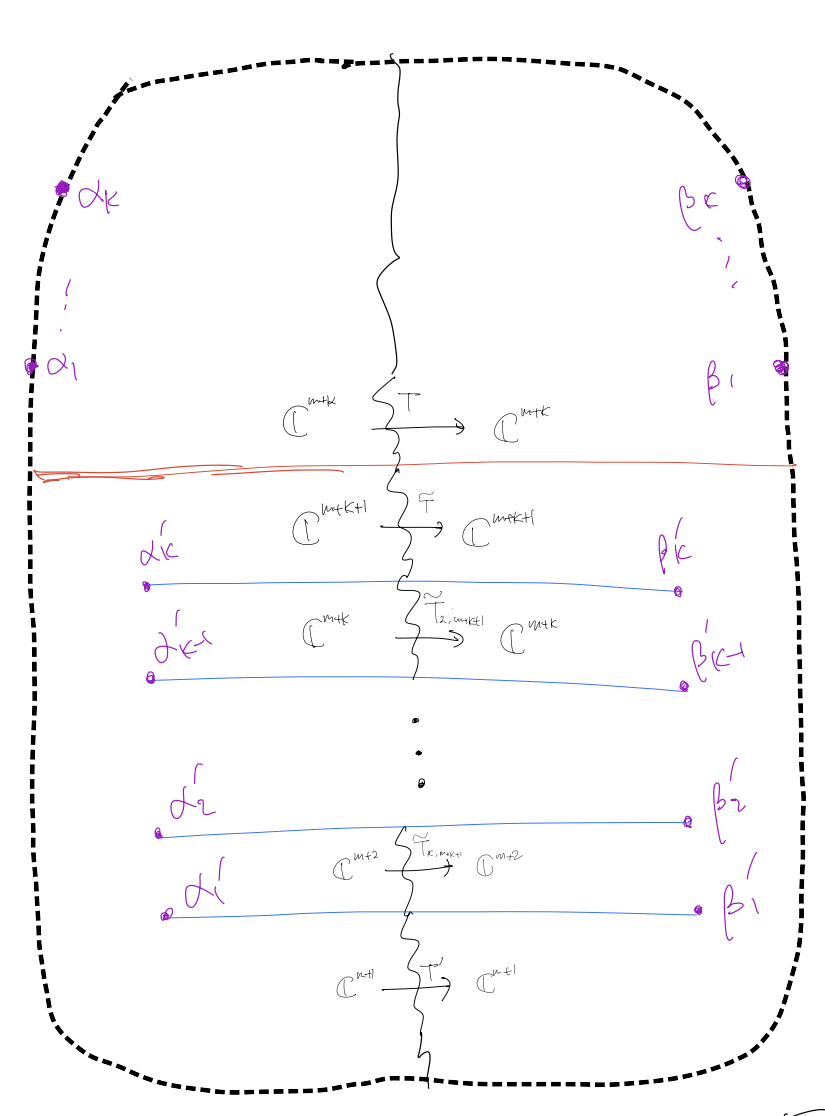 αₖ βₖ
α₁ β₁
ℂᵐ⁺ᵏ T ℂᵐ⁺ᵏ
ℂᵐ⁺ᵏ⁺¹ T̃ ℂᵐ⁺ᵏ⁺¹
α′ₖ β′ₖ
ℂᵐ⁺ᵏ T̃₂,ₘ₊ₖ₊₁ ℂᵐ⁺ᵏ
α′ₖ₋₁ β′ₖ₋₁
α′₂ β′₂
ℂᵐ⁺² T̃ₖ,ₘ₊ₖ₊₁ ℂᵐ⁺²
α′₁ β′₁
ℂᵐ⁺¹ T′ ℂᵐ⁺¹